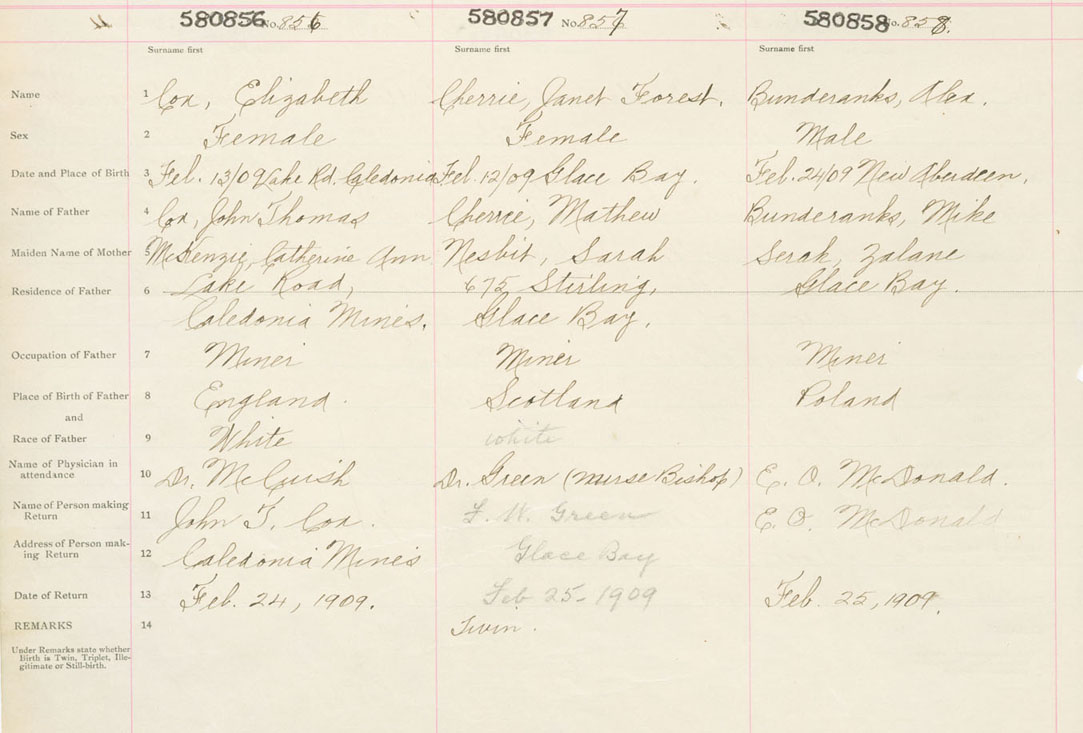 580856 No. 856 580857 No. 857 580858 No. 858.
Surname first Surname first Surname first
Name 1 Cox, Elizabeth Cherrie, Janet Forest. Bunderanks, Alex.
Sex 2 Female Female Male
Date and Place of Birth 3 Feb. 13/09 Lake Rd. Caledonia Feb. 12/09 Glace Bay. Feb. 24/09 New Aberdeen.
Name of Father 4 Cox, John Thomas Cherrie, Mathew Bunderanks, Mike
Maiden Name of Mother 5 McKenzie, Catherine Ann Nesbit, Sarah Serak, Zalane
Residence of Father 6 Lake Road, 675 Stirling, Glace Bay.
Caledonia Mines. Glace Bay.
Occupation of Father 7 Miner Miner Miner
Place of Birth of Father 8 England. Scotland Poland
and
Race of Father 9 White white
Name of Physician in
attendance 10 Dr. McCuish Dr. Green (nurse Bishop) E. O. McDonald.
Name of Person making
Return 11 John T. Cox. F. W. Green E. O. McDonald
Address of Person mak-
ing Return 12 Caledonia Mines Glace Bay
Date of Return 13 Feb. 24, 1909. Feb 25-1909 Feb. 25, 1909.
REMARKS 14 Twin.
Under Remarks state whether
Birth is Twin, Triplet, Ille-
gitimate or Still-birth.